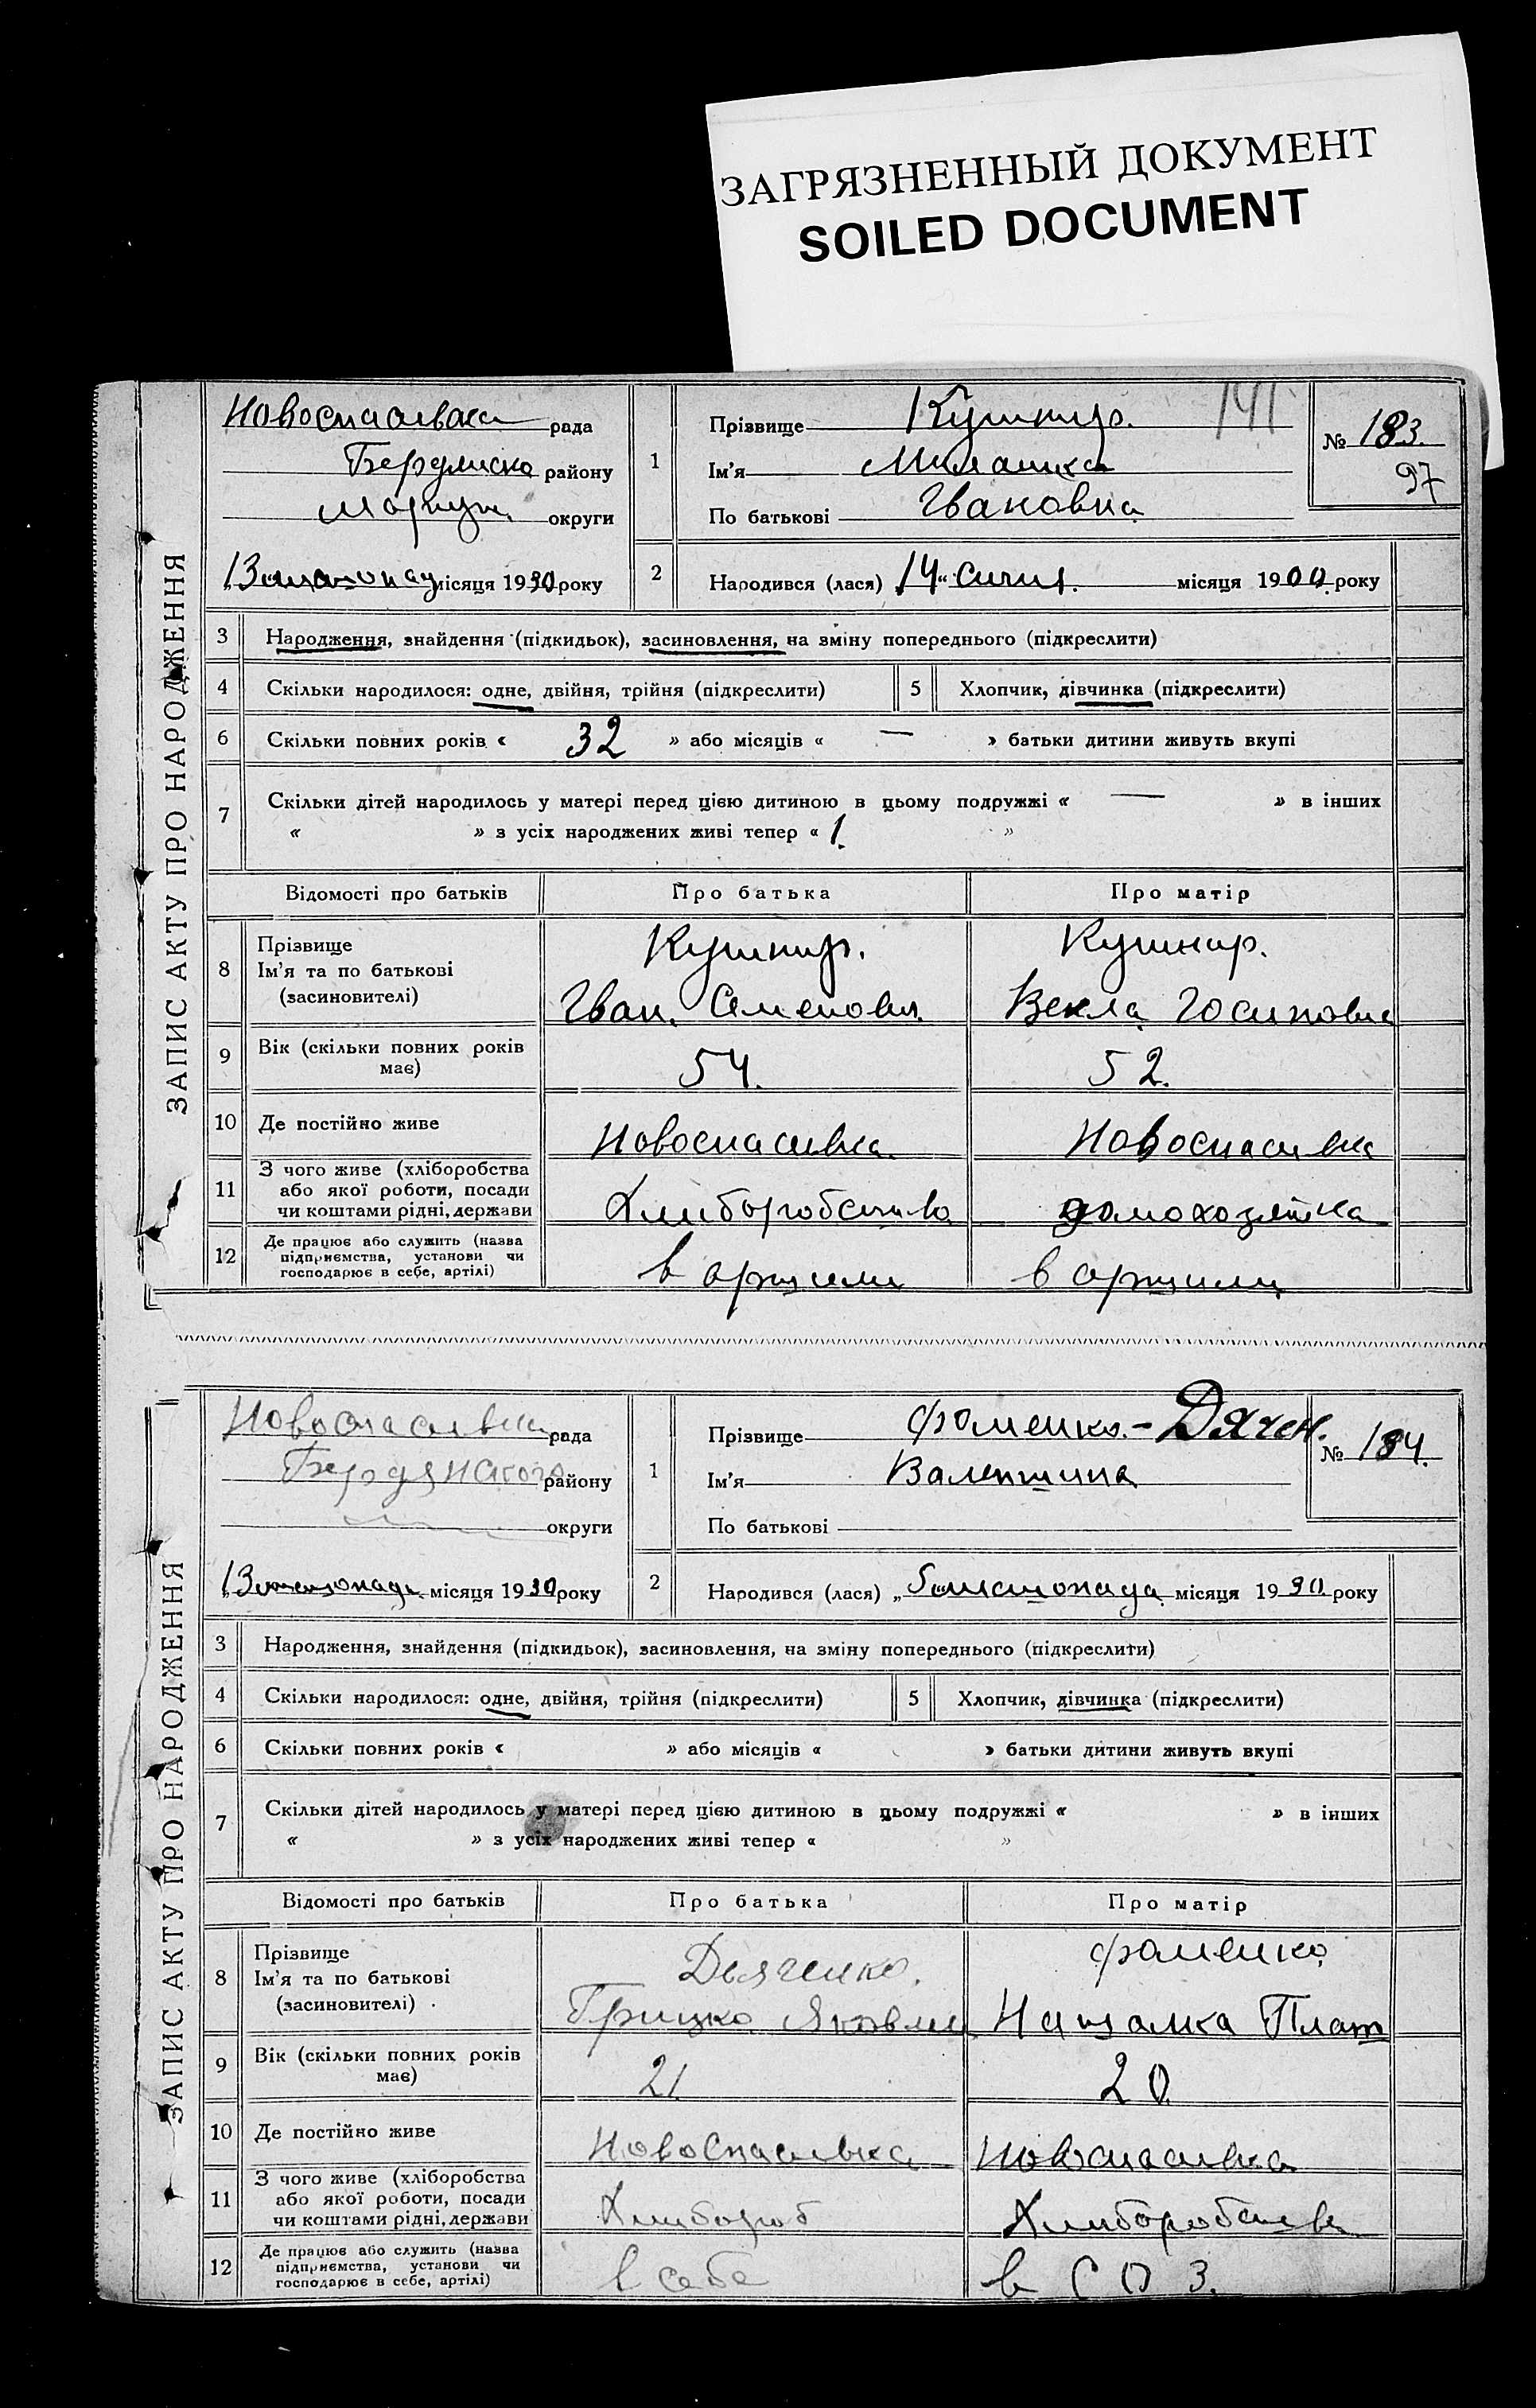 ЗАГРЯЗНЕННЫЙ ДОКУМЕНТ
SOILED DOCUMENT
ЗАПИС АКТУ ПРО НАРОДЖЕННЯ
Новоспасівська рада
Бердянско району
округи
13 місяця 1930 року
1
Прізвище Кушнир. 141
Ім'я Милашка
По батькові Івановна
№ 183.
97
2
Народився (лася) 14 Сичня. місяця 1900 року
3 Народження, знайдення (підкидьок), засиновлення, на зміну попереднього (підкреслити)
4 Скільки народилося: одне, двійня, трійня (підкреслити) 5 Хлопчик, дівчинка (підкреслити)
6 Скільки повних років « 32 » або місяців « — » батьки дитини живуть вкупі
7 Скільки дітей народилось у матері перед цією дитиною в цьому подружжі « — » в інших
« » з усіх народжених живі тепер « 1. »
Відомості про батьків Про батька Про матір
8 Прізвище Кушнир. Кушнир.
Ім'я та по батькові
(засиновителі) Іван. Семенович. Векла Йосиповна
9 Вік (скільки повних років має) 54. 52.
10 Де постійно живе Новоспасивка. Новоспасивка
11 З чого живе (хліборобства
або якої роботи, посади
чи коштами рідні, держави Хлиборобство домохозяйка
12 Де працює або служить (назва
підприємства, установи чи
господарює в себе, артілі) в артили в артили
ЗАПИС АКТУ ПРО НАРОДЖЕННЯ
Новоспасивка рада
Бердянского району
округи
13 листопада місяця 1930 року
1
Прізвище Фоменко. - Дячен.
Ім'я Валентина
По батькові
№ 184.
2
Народився (лася) „ 5 листопада місяця 1930 року
3 Народження, знайдення (підкидьок), засиновлення, на зміну попереднього (підкреслити)
4 Скільки народилося: одне, двійня, трійня (підкреслити) 5 Хлопчик, дівчинка (підкреслити)
6 Скільки повних років « » або місяців « » батьки дитини живуть вкупі
7 Скільки дітей народилось у матері перед цією дитиною в цьому подружжі « » в інших
« » з усіх народжених живі тепер « »
Відомості про батьків Про батька Про матір
8 Прізвище Дьяченко. Фоменко
Ім'я та по батькові
(засиновителі) Грицко Яковлев Наталка Плат
9 Вік (скільки повних років має) 21 20
10 Де постійно живе НовоСпасивка Новоспасивка
11 З чого живе (хліборобства
або якої роботи, посади
чи коштами рідні, держави Хлибороб Хлиборобство
12 Де працює або служить (назва
підприємства, установи чи
господарює в себе, артілі) в себе в С О З.